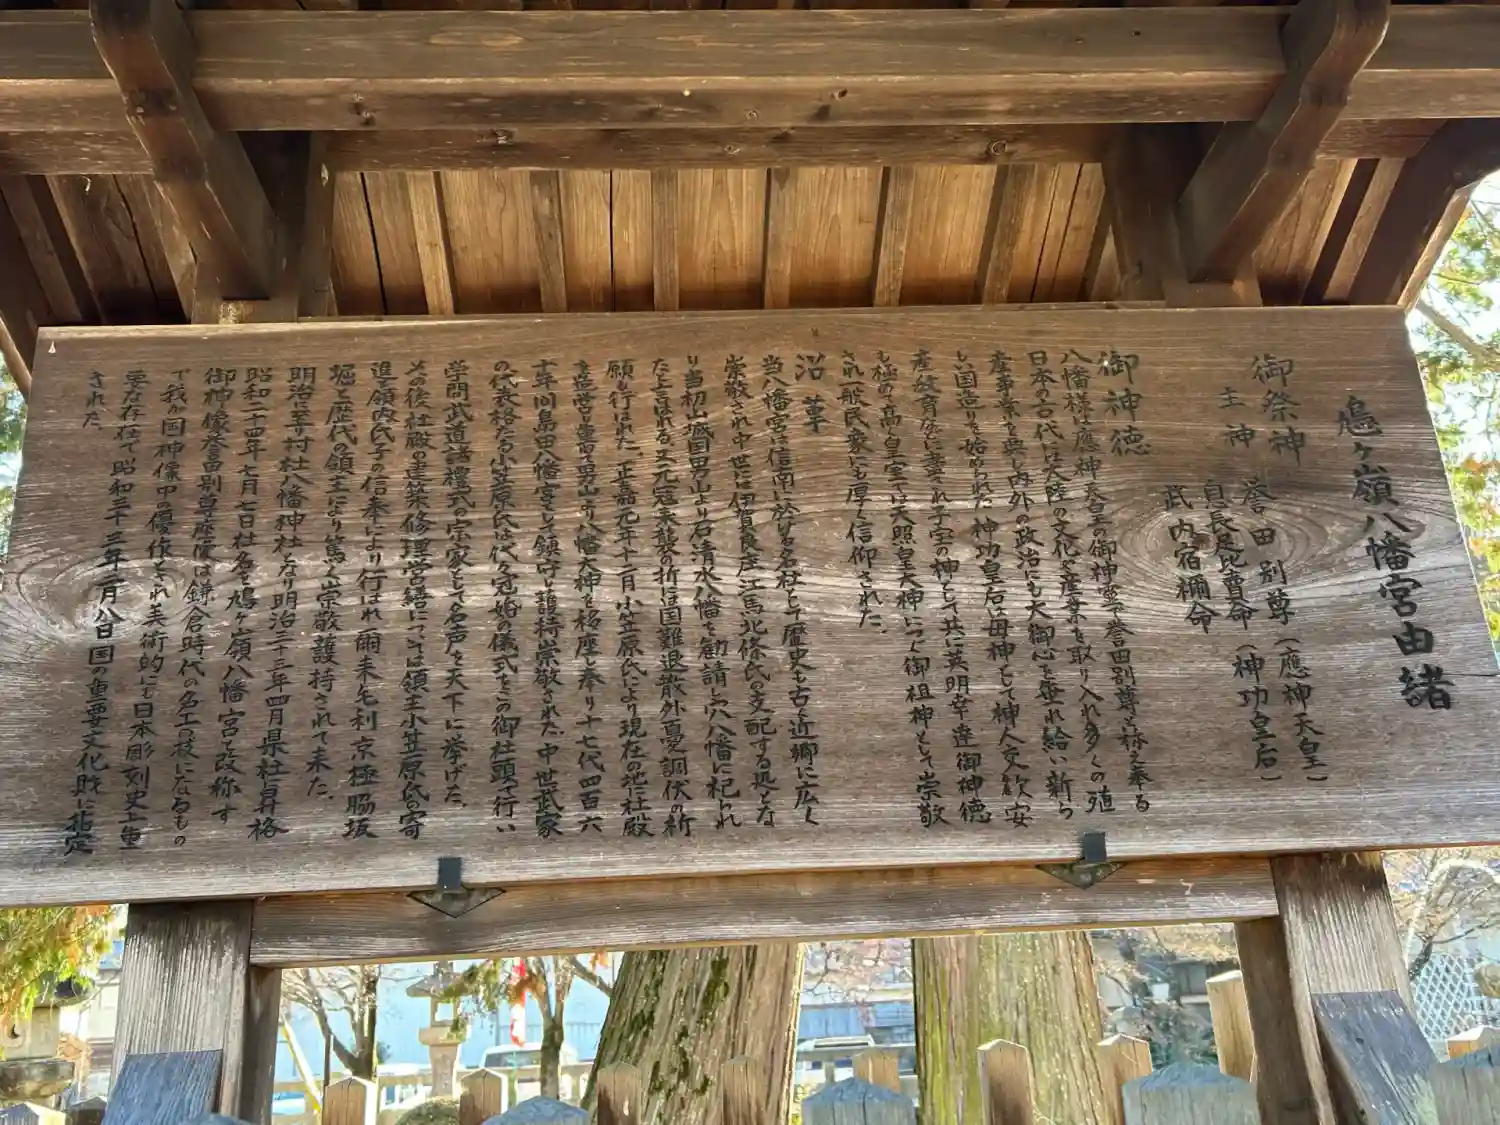 鳩ヶ嶺八幡宮由緒
御祭神
主神 誉田別尊(應神天皇)
息長足比賣命(神功皇后)
武内宿禰命
御神徳
八幡様は應神天皇の御神霊で誉田別尊と称え奉る
日本の古代に大陸の文化と産業を取り入れ多くの殖
産事業を興し内外の政治にも大御心を垂れ給い新ら
しい国造りを始められた神功皇后は母神として神人交歓安
産敎育に盡され子宝の神として共に英明幸達御神徳
も極めて高く皇室では天照皇大神につぐ御祖神として崇敬
され一般民衆にも厚く信仰された。
沿革
当八幡宮は信南に於ける名社として歴史も古く近郷に広く
崇敬され中世には伊賀良庄江馬北條氏の支配する処とな
り当初山城国男山より石清水八幡を勧請し八幡に祀られ
たと言はれる又元寇来襲の折には国難退散外憂調伏の祈
願も行はれた。正嘉元年十二月小笠原氏により現在の地に社殿
を造営し男山より八幡大神を移座し奉り十七代四百六
十年間島田八幡宮として鎮守護持崇敬された中世武家
の代表格たる小笠原氏は代々冠婚の儀式をこの御社頭で行い
学問武道諸禮式の宗家として名声を天下に挙げた。
その後社殿の建築修理営繕については領主小笠原氏の寄
進と領内氏子の信奉により行はれ爾来毛利京極脇坂
堀と歴代の領主により篤く崇敬護持されて来た。
明治に至り村社八幡神社となり明治三十三年四月県社に昇格
昭和二十四年七月七日社名を鳩ヶ嶺八幡宮と改称す
御神像誉田別尊座像は鎌倉時代の名工の技になるもの
で我が国神像中の傑作とされ美術的にも日本彫刻史上重
要な存在で昭和三十三年二月八日国の重要文化財に指定
された。